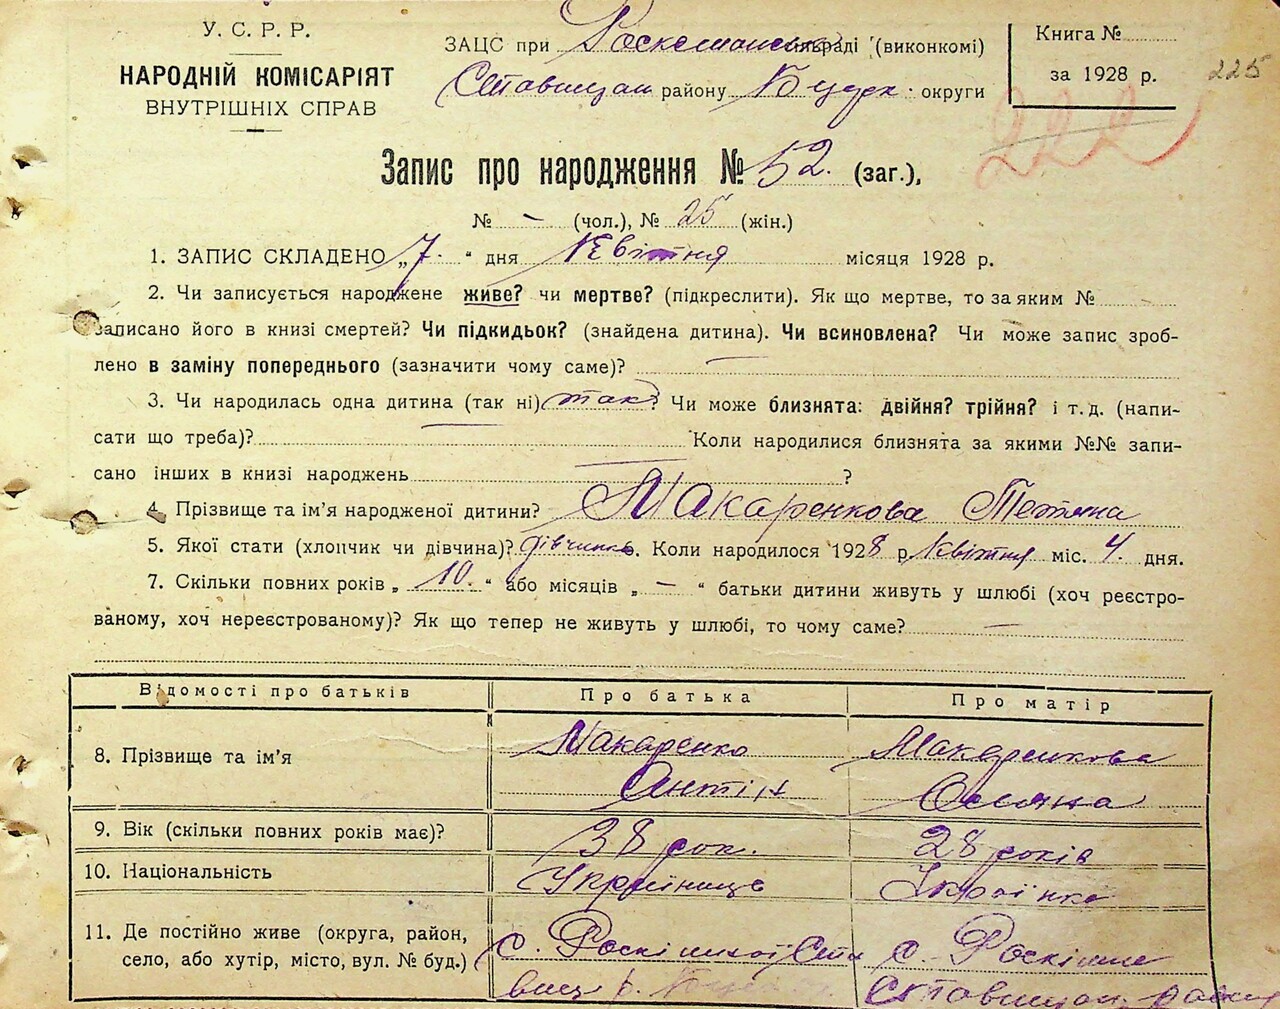 У. С. Р. Р.
НАРОДНІЙ КОМІСАРІЯТ
ВНУТРІШНІХ СПРАВ
ЗАЦС при сільраді (виконкомі)
Ставищан району Бцерк. округи
Книга №
за 1928 р.
225
222
Запис про народження № 52. (заг.),
№ – (чол.), № 25 (жін.)
1. ЗАПИС СКЛАДЕНО „7.“ дня Квітня місяця 1928 р.
2. Чи записується народжене живе? чи мертве? (підкреслити). Як що мертве, то за яким №
записано його в книзі смертей? Чи підкидьок? (знайдена дитина). Чи всиновлена? Чи може запис зроб-
лено в заміну попереднього (зазначити чому саме)? —
3. Чи народилась одна дитина (так ні) так? Чи може близнята: двійня? трійня? і т. д. (напи-
сати що треба)? Коли народилися близнята за якими №№ запи-
сано інших в книзі народжень ?
4. Прізвище та ім’я народженої дитини? Макаренкова Тетяна
5. Якої стати (хлопчик чи дівчина)? дівчинка. Коли народилося 1928 р Квітня міс. 4. дня.
7. Скільки повних років „ 10. “ або місяців „ – “ батьки дитини живуть у шлюбі (хоч реєстро-
ваному, хоч нереєстрованому)? Як що тепер не живуть у шлюбі, то чому саме? —
Відомості про батьків Про батька Про матір
8. Прізвище та ім’я Макаренко Макаренкова
Антін
9. Вік (скільки повних років має)? 38 рок. 28 років
10. Національність Українець Українка
11. Де постійно живе (округа, район, с. с. Роскішне
село, або хутір, місто, вул. № буд.) вищ р. Ставищан. район